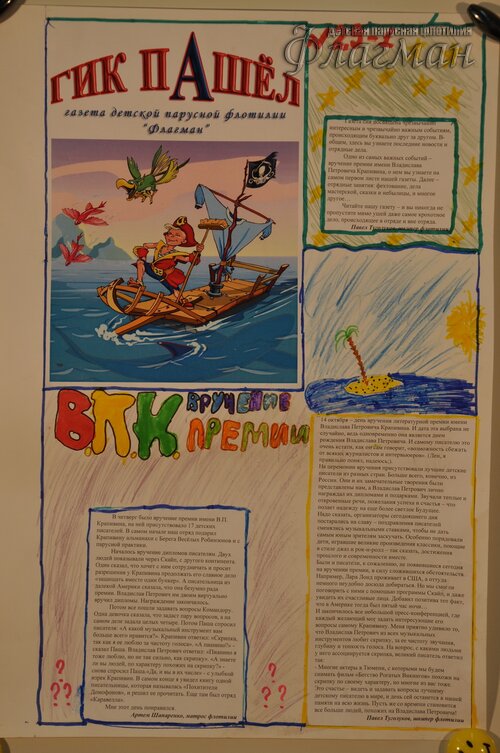 Детская парусная флотилия
Флагман
ГИК ПАШЁЛ
газета детской парусной флотилии
"Флагман"
Газета сия посвящена чрезвычайно
интересным и чрезвычайно важным событиям,
происходящим буквально друг за другом. В-
общем, здесь вы узнаете последние новости и
отрядные дела.
Одно из самых важных событий –
вручение премии имени Владислава
Петровича Крапивина, о нем вы узнаете на
самом первом листе нашей газеты. Далее –
отрядные занятия: фехтование, дела
мастерской, сказки и небылицы, и многое
другое…
Читайте нашу газету – и вы никогда не
пропустите мимо ушей даже самое крохотное
дело, происходящее в отряде и вне отряда.
В.П.К. ВРУЧЕНИЕ
ПРЕМИИ
14 октября – день вручения литературной премии имени
Владислава Петровича Крапивина. И дата эта выбрана не
случайно, ведь одновременно она является днем
рождения Владислава Петровича. И самому писателю это
очень кстати, как он сам говорит, «возможность сбежать
от всяких журналистов и интервьюеров». (Лен, я
правильно понял, надеюсь;).
На церемонии вручения присутствовали лучшие детские
писатели из разных стран. Больше всего, конечно, из
России. Они и их замечательные творения были
представлены нам, а Владислав Петрович лично
награждал их дипломами и подарками. Звучали теплые и
откровенные речи, пожелания успеха и счастья – что
подает надежду на еще более светлое будущее.
Надо сказать, организаторы сегодняшнего дня
постарались на славу – поздравления писателей
сменялись музыкальными ставками, чтобы не дать
самым юным зрителям заскучать. Особенно порадовали
дети, игравшие великие произведения классики, поющие
в стиле джаз и рок-н-ролл – так сказать, достижения
прошлого и современности вместе.
Были и писатели, к сожалению, не появившиеся сегодня
на вручении премии, в силу сложившихся обстоятельств.
Например, Лара Лонд проживает в США, и оттуда
немного неудобно дохода добираться. Но мы смогли
поговорить с ними с помощью программы Скайп, и даже
увидеть их счастливые лица. Добавлю позитива это факт,
что в Америке тогда был пятый час ночи…
И закончилось все небольшой пресс-конференцией, где
каждый желающий мог задать интересующие его
вопросы самому Крапивину. Меня приятно удивило то,
что Владислав Петрович из всех музыкальных
инструментов любит скрипку, за ее чистоту звучания,
глубину и тонкость голоса. На вопрос, с какими людьми
у него ассоциируется скрипка, великий писатель ответил
так:
Многие актеры в Тюмени, с которыми мы будем
снимать фильм «Бегство Рогатых Викингов» похожи на
скрипку по своему характеру, но многие из вас тоже.
Это счастье – видеть и задавать вопросы лучшему
детскому писателю в мире, и день сей останется в нашей
памяти на всю жизнь. Пусть же со временем становится
все больше людей, похожих на Владислава Петровича!
Павел Туголуков, юнкер флотилии
В четверг было вручение премии имени В.П.
Крапивина, на ней присутствовало 17 детских
писателей. В самом начале наш отряд подарил
Крапивину альманахи с Берега Весёлых Робинзонов и с
парусной практики.
Началось вручение дипломов писателям. Двух
людей показывали через Скайп, с другого континента.
Один сказал, что хочет с ним сотрудничать и просит
разрешения у Крапивина продолжать его славное дело
«защищать вместе один бункер». А писательница в
далекой Америке сказала, что она безумно рада
премии. Владислав Петрович им своим виртуально
вручил дипломы. Награждение закончилось.
Потом все пошли задавать вопросы Командору.
Одна девочка сказала, что задаст пару вопросов, а на
самом деле задала целых четыре. Потом Паша спросил
писателя: «А какой музыкальный инструмент вам
больше всего нравится?». Крапивин ответил: «Скрипка,
так как я ее люблю за чистоту голоса». «А пианино?» -
сказал Паша. Владислав Петрович ответил: «Пианино я
тоже люблю, но не так сильно, как скрипку». «А знаете
ли вы людей, по характеру похожих на скрипку?» -
снова спросил Паша.«Да, и вы в их числе» - с улыбкой
изрек Крапивин. В самом конце я увидел книгу одной
писательницы, которая называлась «Похитители
Домофонов», и решил ее прочитать. Еще там был отряд
«Каравелла».
Мне этот день понравился.
Артем Шинаренко, матрос флотилии
?
? ?
?
? ?